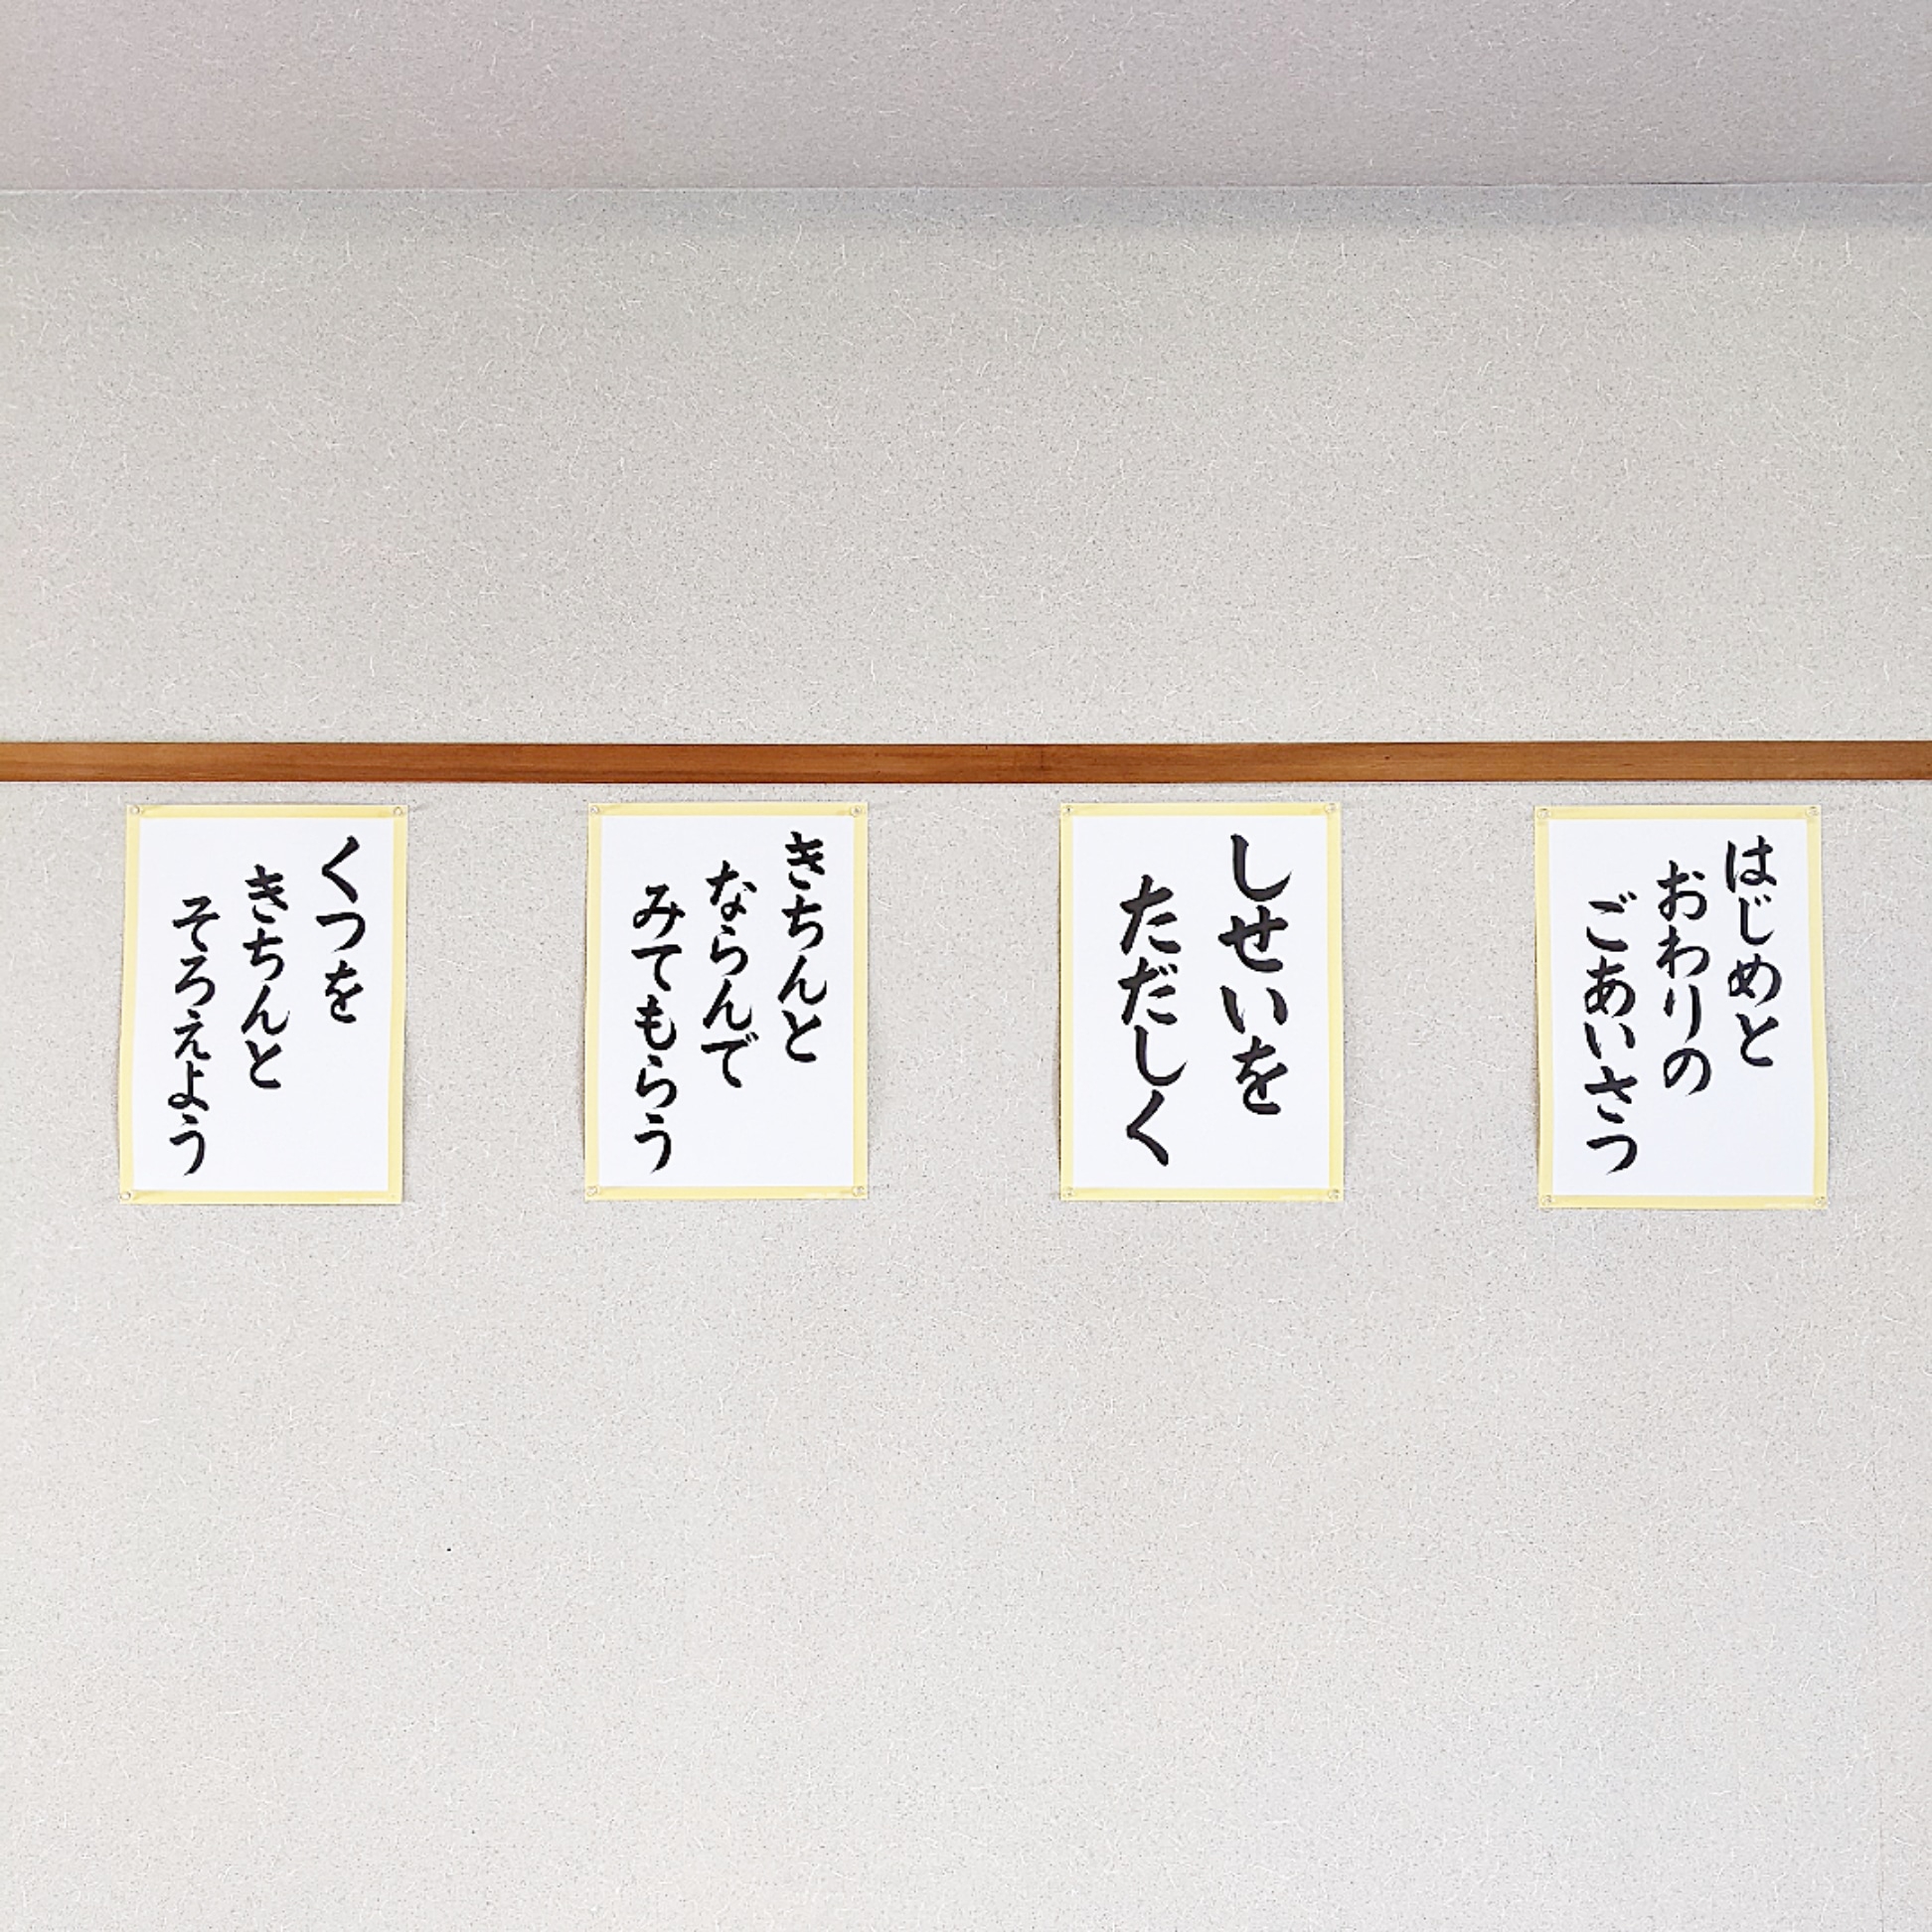 はじめと
おわりの
ごあいさつ
しせいを
ただしく
きちんと
ならんで
みてもらう
くつを
きちんと
そろえよう